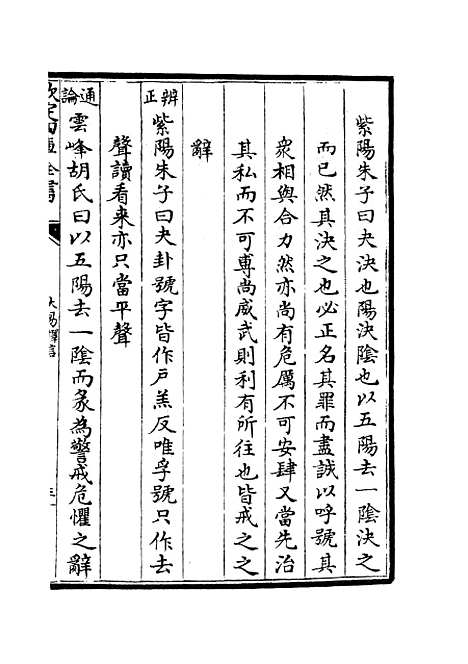 紫陽朱子曰夬決也陽決陰也以五陽去一陰決之
而已然其決之也必正名其罪而盡誠以呼號其
衆相與合力然亦尚有危厲不可安肆又當先治
其私而不可專尚威武則利有所往也皆戒之之
辭
辨正紫陽朱子曰夬卦號字皆作戶羔反唯孚號只作去
聲讀看來亦只當平聲
通論雲峰胡氏曰以五陽去一陰而彖為警戒危懼之辭
欽定四庫全書
大易擇言